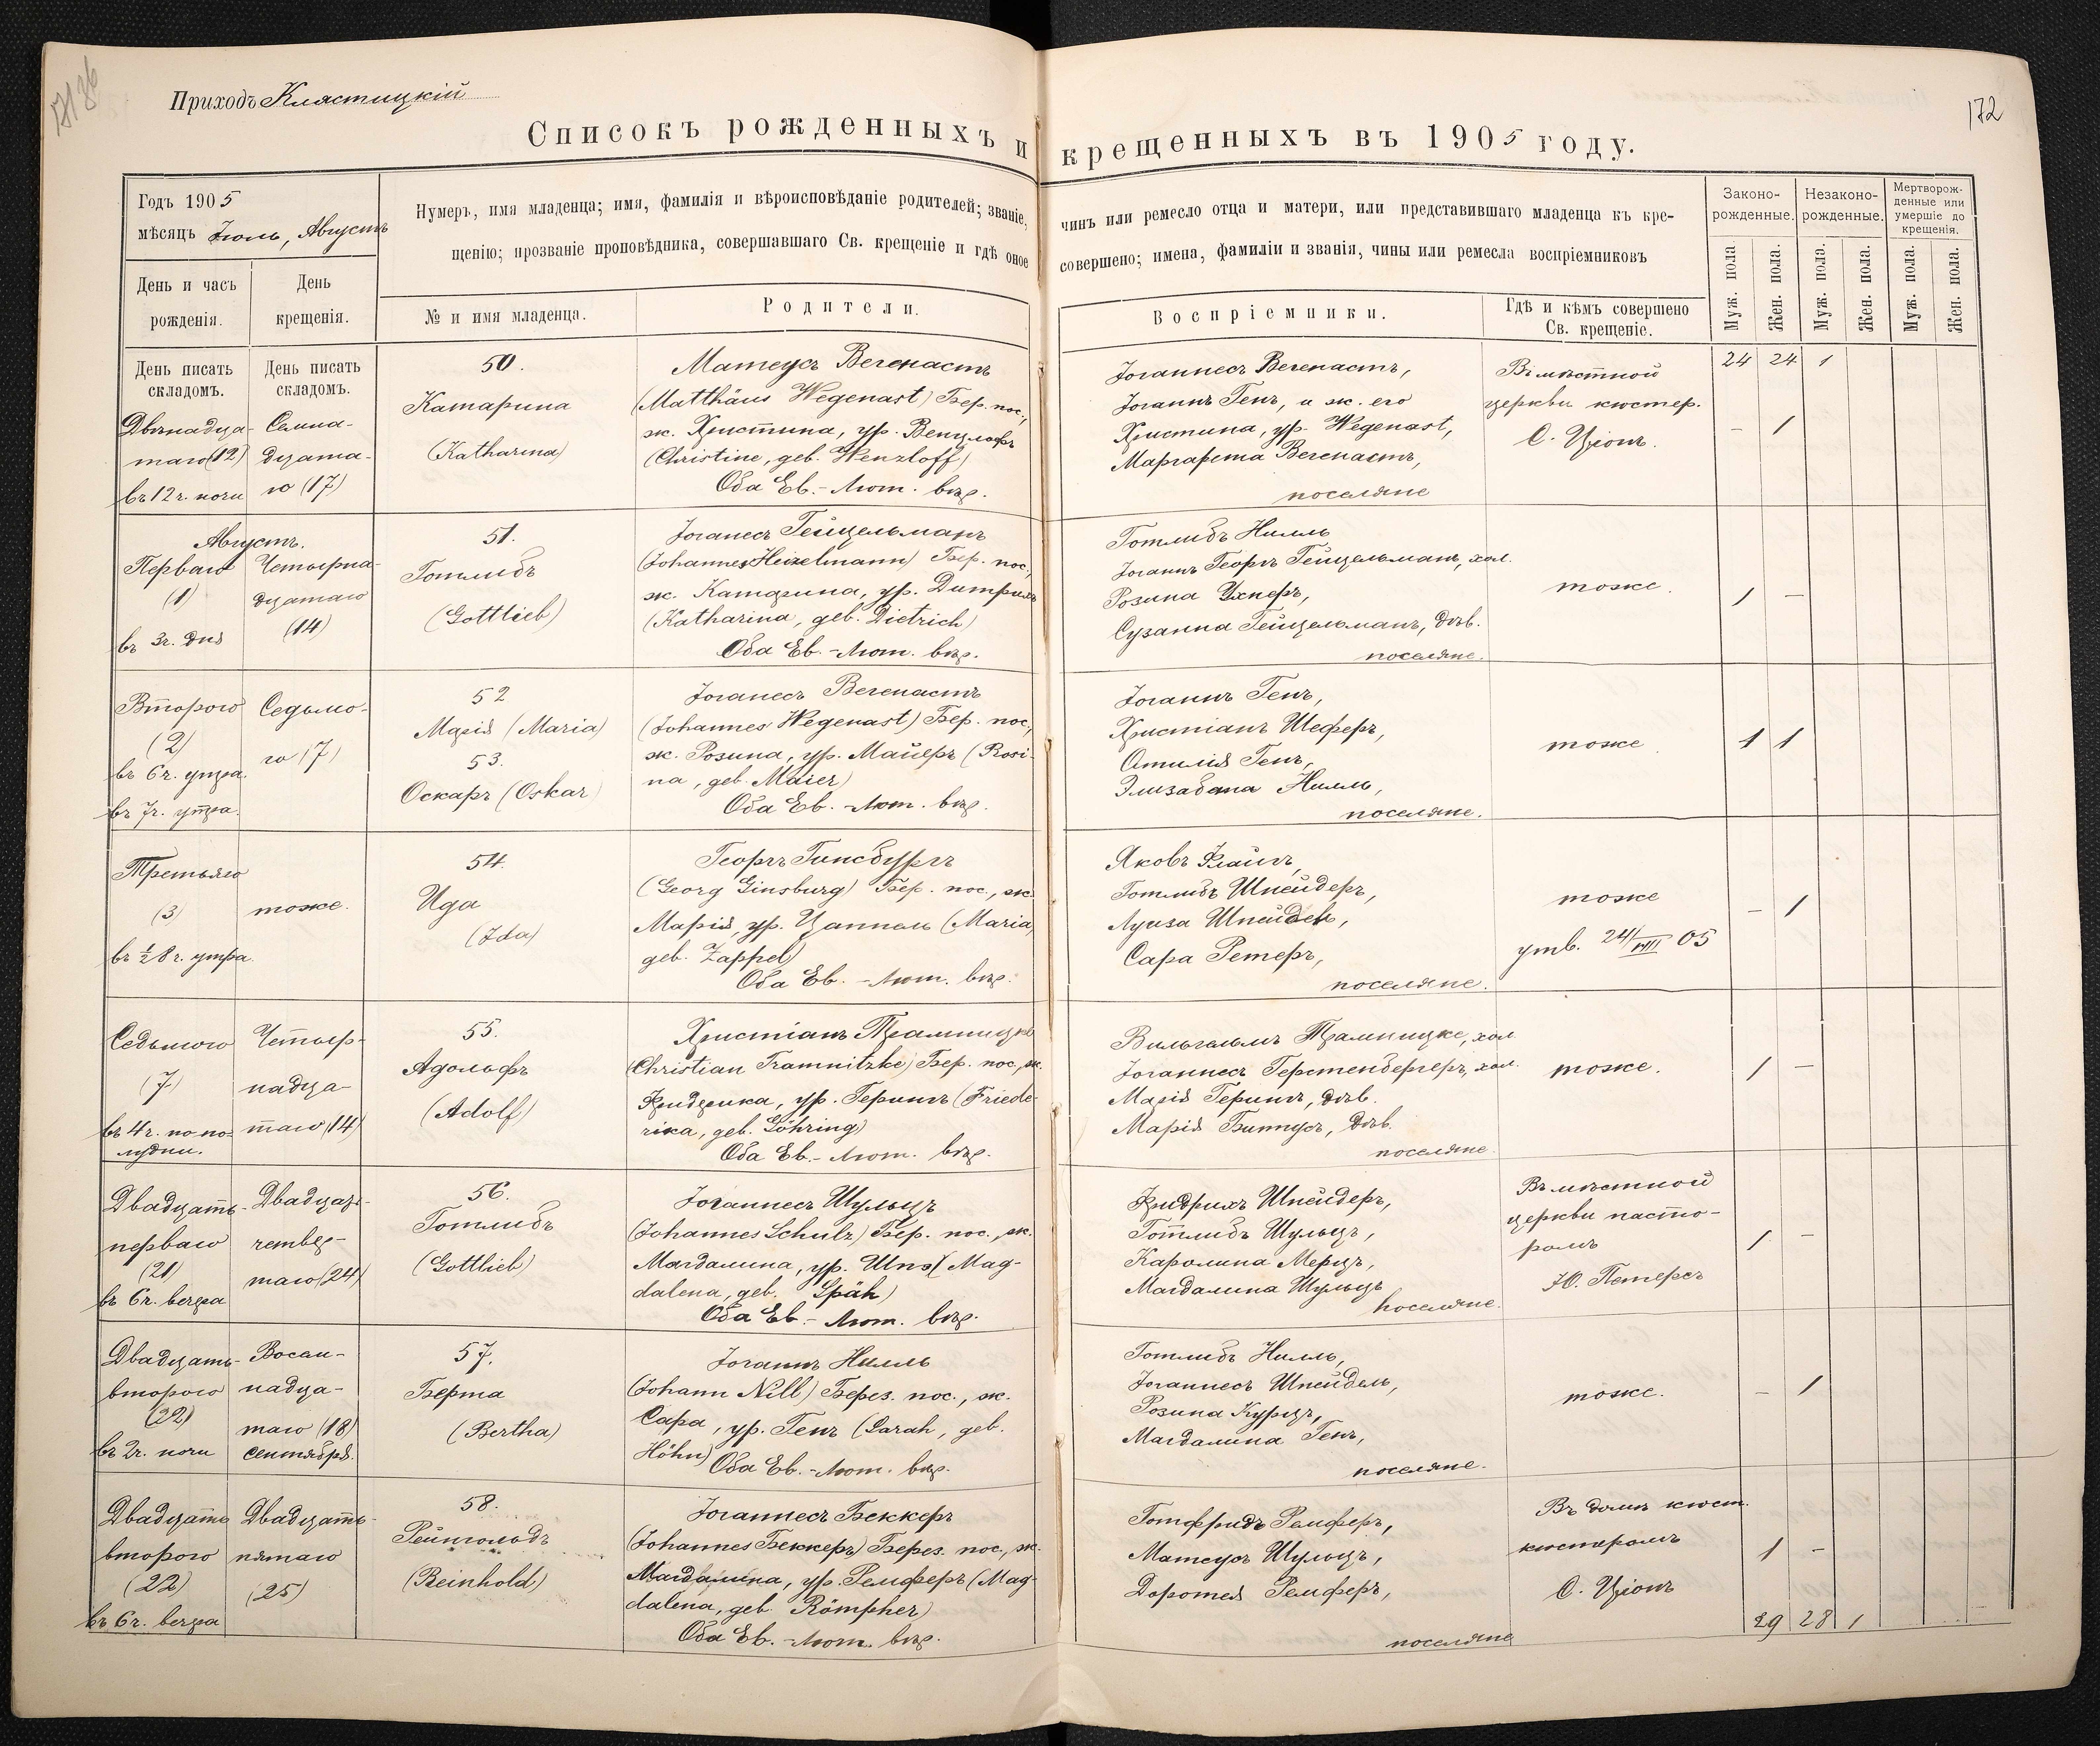 171 об
Приходъ Клястицкій
172
Списокъ рожденныхъ и крещенныхъ въ 1905 году.
Годъ 1905
мѣсяцъ Іюль, Августъ
Нумеръ, имя младенца; имя, фамилія и вѣроисповѣданіе родителей; званіе, чинъ или ремесло отца и матери, или представившаго младенца къ кре-
щенію; прозваніе проповѣдника, совершавшаго Св. крещеніе и гдѣ оное совершено; имена, фамиліи и званія, чины или ремесла воспріемниковъ
Законо-
рожденные.
Незаконо-
рожденные.
Мертворож-
денные или
умершіе до
крещенія.
День и часъ
рожденія.
День
крещенія.
№ и имя младенца.
Родители.
Воспріемники.
Гдѣ и кѣмъ совершено
Св. крещеніе.
Муж. пола
Жен. пола.
Муж. пола.
Жен. пола.
Муж. пола.
Жен. пола.
День писать
складомъ.
День писать
складомъ.
24 24 1
Двѣнадца-
таго (12)
въ 12 ч. ночи
Семна-
дцата-
го (17)
50.
Катарина
(Katharina)
Матеусъ Вегенастъ
(Matthäus Wegenast) Бер. пос.,
ж. Христина, ур. Венцлофъ
(Christine, geb. Wenzloff)
Оба Ев.-Лют. вѣр.
Іоаннесъ Вегенастъ,
Іоганнъ Генъ, и ж. его
Христина, ур. Wegenast,
Маргарета Вегенастъ,
поселяне
Въ мѣстной
церкви кюстер.
О. Ціонъ.
— 1
Августъ.
Перваго
(1)
въ 3 ч. дня
Четырна-
дцатаго
(14)
51.
Готлибъ
(Gottlieb)
Іоганесъ Гейцельманъ
(Johannes Heizelmann) Бер. пос.,
ж. Катарина, ур. Дитрихъ
(Katharina, geb. Dietrich)
Оба Ев.-Лют. вѣр.
Готлибъ Нилль
Іоганнъ Георгъ Гейцельманъ, хол.
Розина
Сузанна Гейцельманъ, дѣв.
поселяне.
тоже.
1 —
Второго
(2)
въ 6 ч. утра.
въ 7 ч. утра.
Седьмо-
го (7)
52
Марія (Maria)
53.
Оскаръ (Oskar)
Іоганесъ Вегенастъ
(Johannes Wegenast) Бер. пос.,
ж. Розина, ур. Майеръ (Rosi-
na, geb. Maier)
Оба Ев.-Лют. вѣр.
Іоганнъ Генъ,
Христіанъ Шеферъ,
Отилія Генъ,
Элизабета Нилль,
поселяне.
тоже.
1 1
Третьяго
(3)
въ ½ 8 ч. утра.
тоже.
54.
Ида
(Ida)
Георгъ Гинсбургъ
(Georg Ginsburg) Бер. пос., ж.
Марія, ур. Цаппель (Maria,
geb. Zappel)
Оба Ев.-Лют. вѣр.
Яковъ Клайнъ,
Готлибъ Шнейдеръ,
Луиза Шнейдеръ,
Сара Ретеръ,
поселяне.
тоже
утв. 24/VIII 05
— 1
Седьмого
(7)
въ 4 ч. по по-
лудни.
Четыр-
надца-
таго (14)
55.
Адольфъ
(Adolf)
Христіанъ Трамницке
(Christian Tramnitzke) Бер. пос., ж.
Фридерика, ур. Герингъ (Friede-
rika, geb. Göhring)
Оба Ев.-Лют. вѣр.
Вильгельмъ Трамницке, хол.
Іоганнесъ Герстенбергеръ, хол.
Марія Герингъ, дѣв.
Марія Битнусъ, дѣв.
поселяне.
тоже.
1 —
Двадцать-
перваго
(21)
въ 6 ч. вечера
Двадцать-
четвер-
таго (24)
56.
Готлибъ
(Gottlieb)
Іоганнесъ Шульцъ
(Johannes Schulz) Бер. пос., ж.
Магдалина, ур. Шпэ (Mag-
dalena, geb. Späh)
Оба Ев.-Лют. вѣр.
Фридрихъ Шнейдеръ,
Готлибъ Шульцъ,
Каролина Мерцъ,
Магдалина Шульцъ
поселяне.
Въ мѣстной
церкви пасто-
ромъ
Ю. Петерсъ
1 —
Двадцать-
второго
(22)
въ 2 ч. ночи
Восем-
надца-
таго (18)
сентября.
57.
Берта
(Bertha)
Іоганнъ Нилль
(Johann Nill) Берез. пос., ж.
Сара, ур. Генъ (Sarah, geb.
Höhn)
Оба Ев.-Лют. вѣр.
Готлибъ Нилль,
Іоганнесъ Шнейдель,
Розина Курцъ,
Магдалина Генъ,
поселяне.
тоже.
— 1
Двадцать
второго
(22)
въ 6 ч. вечера
Двадцать-
пятаго
(25)
58.
Рейнгольдъ
(Reinhold)
Іоганнесъ Беккеръ
(Johannes Беккеръ) Берез. пос., ж.
Магдалина, ур. Ремферъ (Mag-
dalena, geb. Römpher)
Оба Ев.-Лют. вѣр.
Готфридъ Ремферъ,
Матеусъ Шульцъ,
Доротея Ремферъ,
поселяне
Въ домѣ кюст.
кюстеромъ
О. Ціонъ
1 —
29 28 1